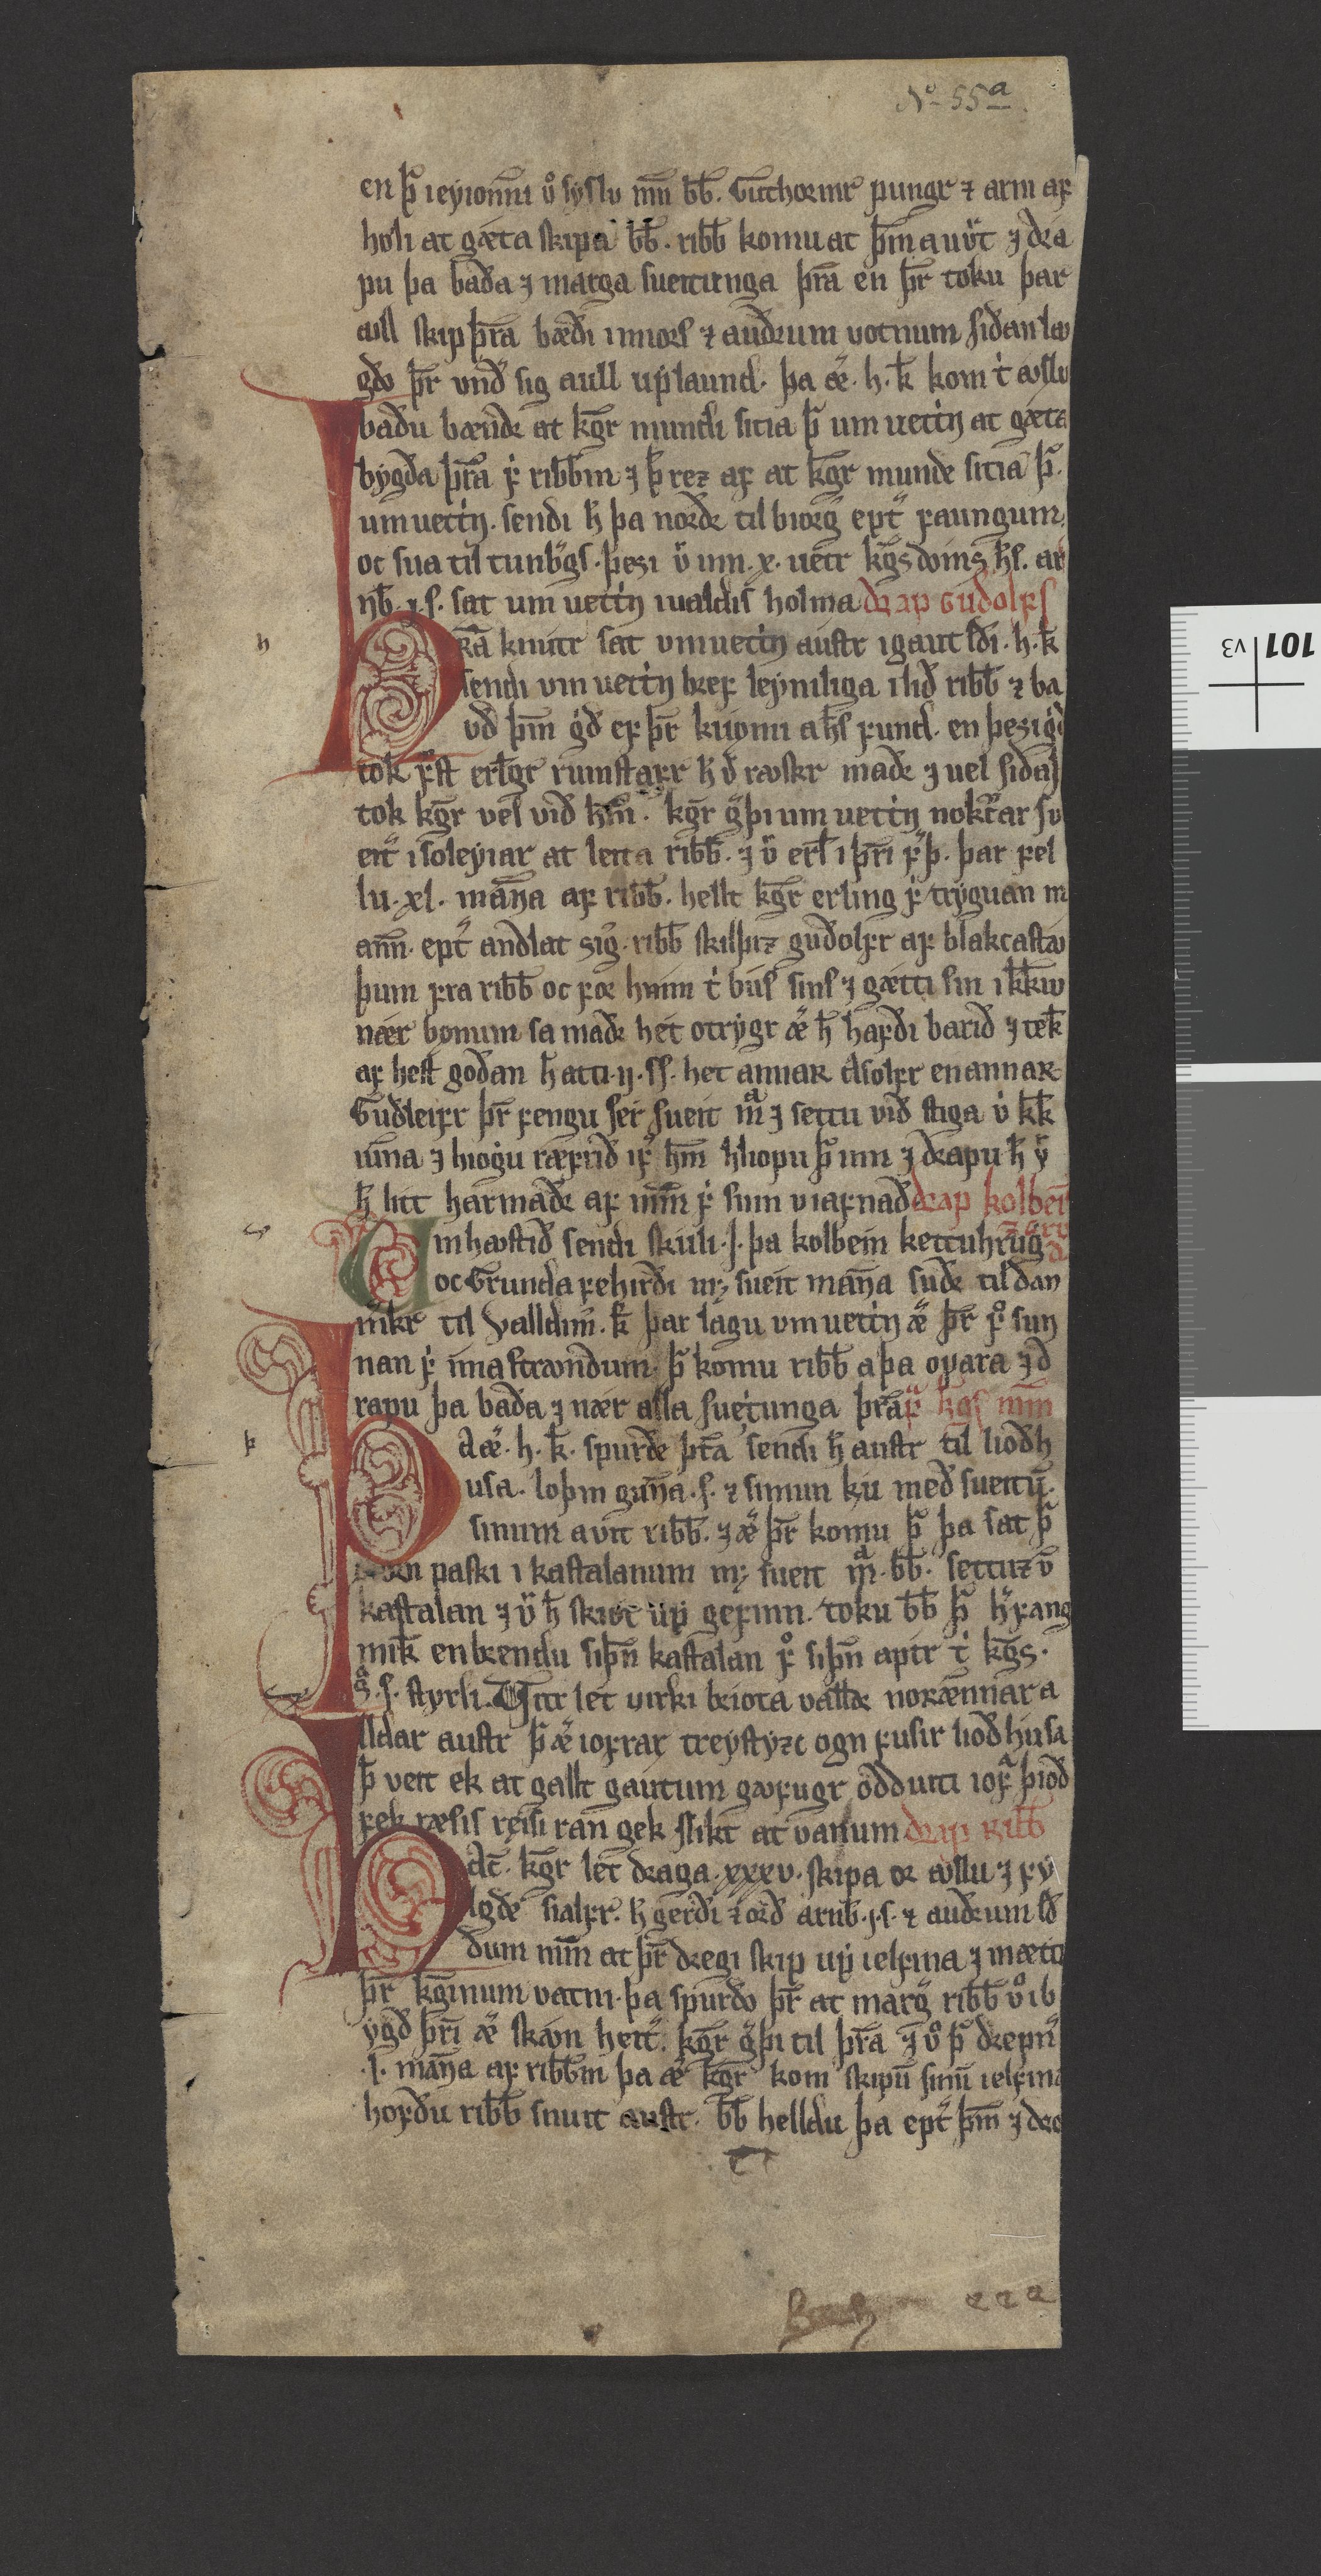 No 55a
en þ̄ i eyionni v̊ syslu m̄n b̄b. Guthormr pungr ⁊ arni af
holi at gæta skipa b̄b. rib̄b komu at þm̄ a uvͤrt ⁊ dra
pu þa baða ⁊ marga sueitunga þra en þr̄ toku þar
aull skip þra bæði i miors ⁊ auðrum votnum siðan lꜹ
gðo þr̄ undͤ sig aull upplaund. þa eͤ .h. k̄ kom t̍ ꜹslo
baðu bændr at kgr̄ mundi sitia þ̄ um uett̍n at gæta
bygða þra f̍ rib̄bm ⁊ þ̄ rez af at kgr̄ munde sitia þ̄.
um uett̍n. sendi h̄ þa norðr til biorg eptͤ faungum
oc sua til tunbͤgs. þesi v̈ iiii. x. uetr kgs̄doms hs̄. ar
nb̄. i. s. sat um uett̍n iualdis holma drap Guðolfs
h
ra knutr sat um uett̍n austr i gautldi. h. k̄
sendi um uett̍n bref leyniliga i lið rib̄b ⁊ ba
uð þm̄ g̍ð ef þr̄ kuomi a hs̄ fund. en þesi g̍ð
tok fͤst erlgr rumstafr h̄ v̈ rꜹskr maðr ⁊ uel siðaj
tok kgr̄ vel við hm̄. kgr̄ gͤþi um uett̍n nokrar su
eitͤ i soleyiar at leita rib̄b. ⁊ v̈ erl̄ i þri fͤþ. þar fel
lu. xl. man̄a af rib̄b. hellt kgr̄ erling f̍ tryguan m
ann. eptͤ andlat siǵ. rib̄b skilþiz guðolfr af blakcastꜹ
þum fra rib̄b oc for heim t̍ bus sins ⁊ gætti sin i k̄kiu
nær bonum sa maðr het otrygr eͤ h̄ hafði barið ⁊ tek
af hest goðan h̄ atti .ij. ss. het annar Asolfr en annar
Guðleifr þr̄ fengu ser sueit m̄ ⁊ settu við stiga v̍ k̄k
iuna ⁊ hiogu ræfrið if̍ hm̄ hliopu þ̄ inn ⁊ drapu h̄ v̈
h̄ litt harmaðr af m̄m f̍ sinn uiafnað drap kolbei
inhꜹstið sendi skuli. J. þa kolbein kettuhrygͤ
oc Grunda fehirði mꝫ sueit man̄a suðr til dan
mkr til Valldim. k̄ þar lagu um uett̍n eͤ þr̄ fͦ sun
nan f̍ innastrꜹndum. þ̄ komu rib̄b a þa opara ⁊ d
rapu þa baða ⁊ nær alla sueitunga þra f̄ kgs m̄m
þ
a eͤ. h. k̄. spurðe þra sendi h̄ austr til lioðh
usa. loþin gun̄a. s. ⁊ simun ku með sueitū
sinum a vit rib̄b. ⁊ eͤ þr̄ komu þ̄ þa sat þ̄
paski i kastalanum mꝫ sueit m̄. b̄b. settuz v̄
kastalan ⁊ v̈ h̄ skiot up gefinn. toku b̄b þ̄ hͤfang
mik̄ en brendu siþn̄ kastalan fͦ siþn̄ aptr t̍ kgs̄.
s. s. styrli. Vitr let uirki briota valldr noræmnar a
lldar austr þ̄ eͤ iofrar treystyzt ogn fusir lioðhusa
þ̄ veit ek at gallt gautum gꜹfugr oddviti iofͣ þioð
fek ræsis reisi ran gek slikt at vanum drap Rib̄b
at̄. kgr̄ let draga. xxxv. skipa or ꜹslu ⁊ fy
lgðe sialfr. h̄ gerði ⁊ orð arnb. j. s. ⁊ auðrum lð
ðum m̄m at þr̄ dregi skip up i elfina ⁊ mætti
þr̄ kginum vatni. þa spurðo þr̄ at margͤ rib̄b vͦ i b
ygð þri eͤ skaun heitͤ. kgr̄ gͤþi til þra ⁊ vͦ þ̄ drepnͤ
.l. man̄a af rib̄bm þa eͤ kgr̄ kom skipū sinū i elfina
hofðu rib̄b snuit austr. b̄b helldu þa eptͤ þm̄ ⁊ dro